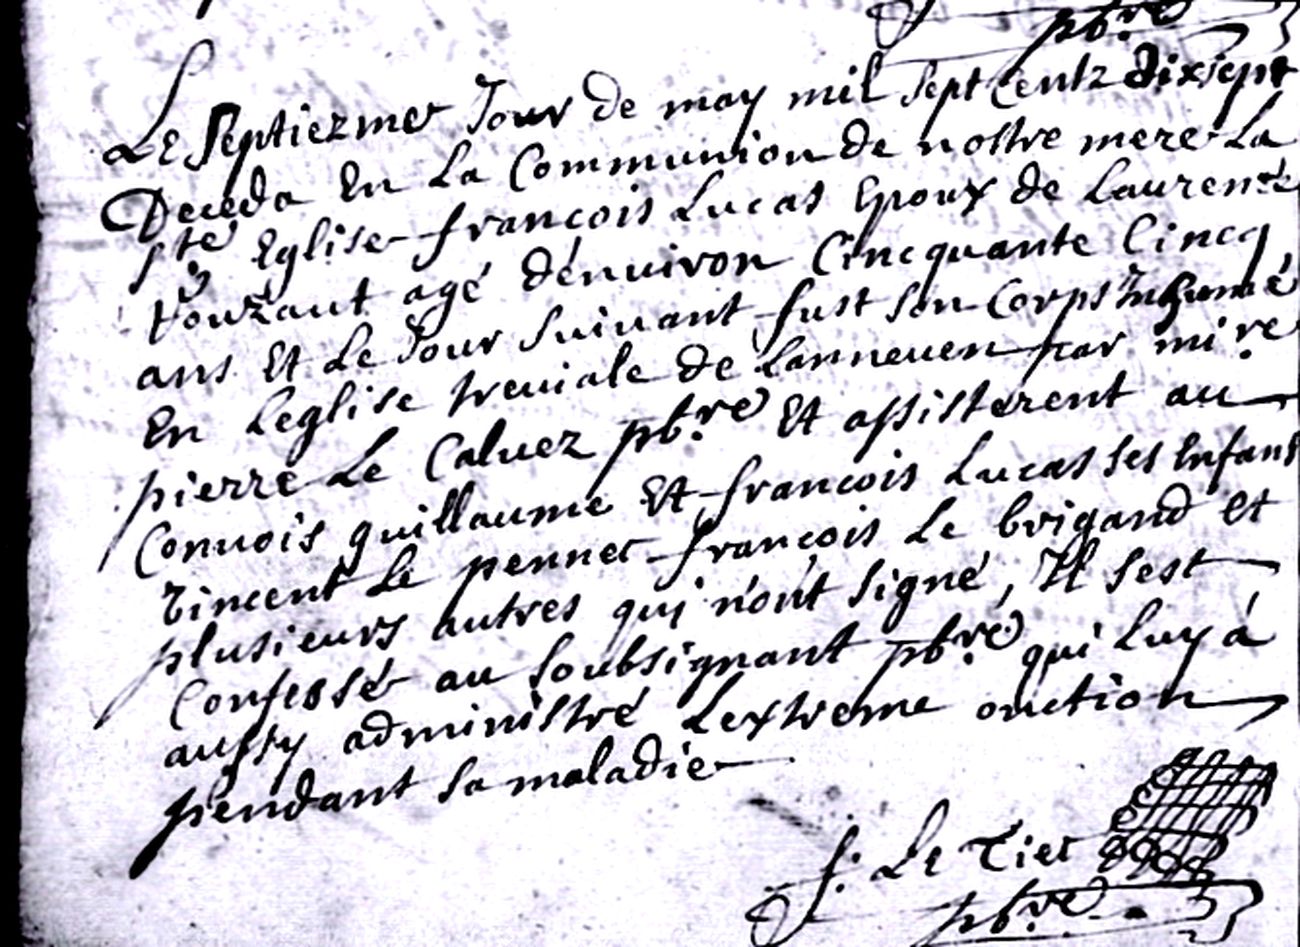 pbre
Le Septiezme Jour de may mil sept Centz dixsept
Deceda En La Communion de nostre mere La
ste Eglise françois Lucas Epoux de Laurence
Touzaut agé d'enuiron Cincquante Cincq
ans Et Le Jour suiuant fust son Corps Inhumé
En Leglise treuiale de Lanneuen par mire
pierre Le Caluez pbre Et assisterent au
Conuois guillaume Et francois Lucas ses Enfans
Vincent Le pennec françois Le brigand et
plusieurs autres qui n'ont signé, Il sest
Confessé au soubsignant pbre qui luy á
aussy administré Lextreme onction
pendant sa maladie
f: Le Tiec
pbre